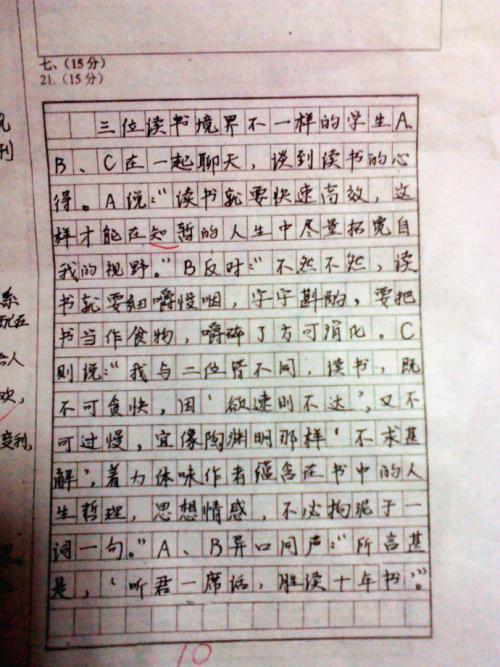 七、（15分）
21.（15分）
三位读书境界不一样的学生A、
B、C在一起聊天，谈到读书的心
得。A说："读书就要快速高效，这
样才能在知暂的人生中尽量拓宽自
我的视野。"B反对："不然不然，读
书就要细嚼慢咽，字字斟酌，要把
书当作食物，嚼碎了方可消化。C
则说："我与二位皆不同，读书，既
不可贪快，因'欲速则不达'，又不
可过慢，宜像陶渊明那样'不求甚
解'，着力体味作者蕴含在书中的人
生哲理，思想情感，不必拘泥于一
词一句。"A、B异口同声："所言甚
是，'听君一席话，胜读十年书'"。
10
刊
系
人
欢，